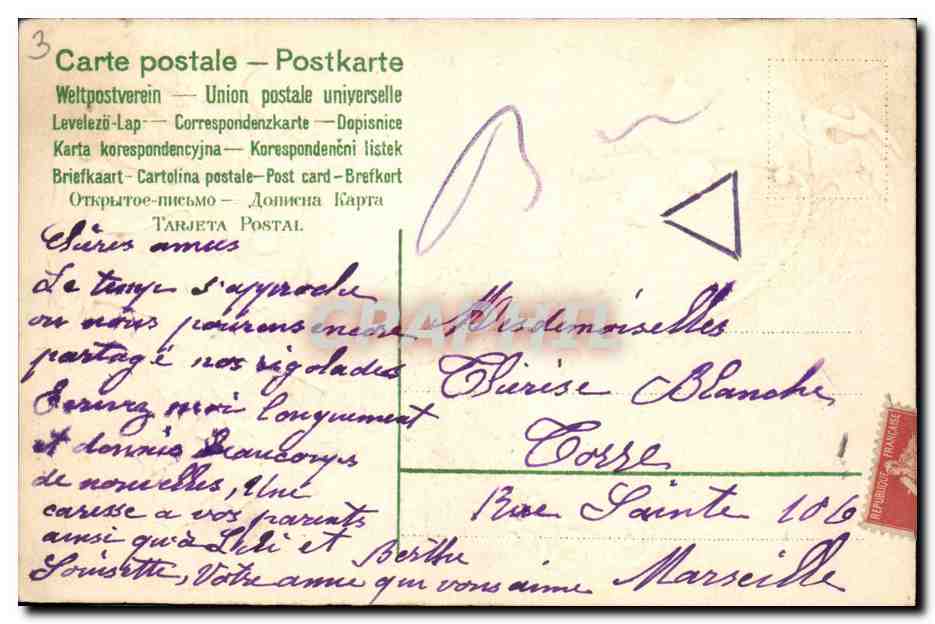 3
Carte postale — Postkarte
Weltpostverein — Union postale universelle
Levelezö-Lap — Correspondenzkarte — Dopisnice
Karta korespondencyjna — Korespondenčni listek
Briefkaart - Cartolina postale - Post card - Brefkort
Открытое-письмо — Дописна Карта
Tarjeta Postal
Chères amies
Le temps s'approche
ou nous pourons encore
partagé nos rigolades
Ecrivez moi longuement
et donnés beaucoups
de nouvelles, Une
caresse a vos parents
ainsi qu'à Lili et Berthe
Louisette, Votre amie qui vous aime
Mesdemoiselles
Thérèse Blanche
Torre
Rue Sainte 106
Marseille
REPUBLIQUE FRANÇAISE
CPAPHIL